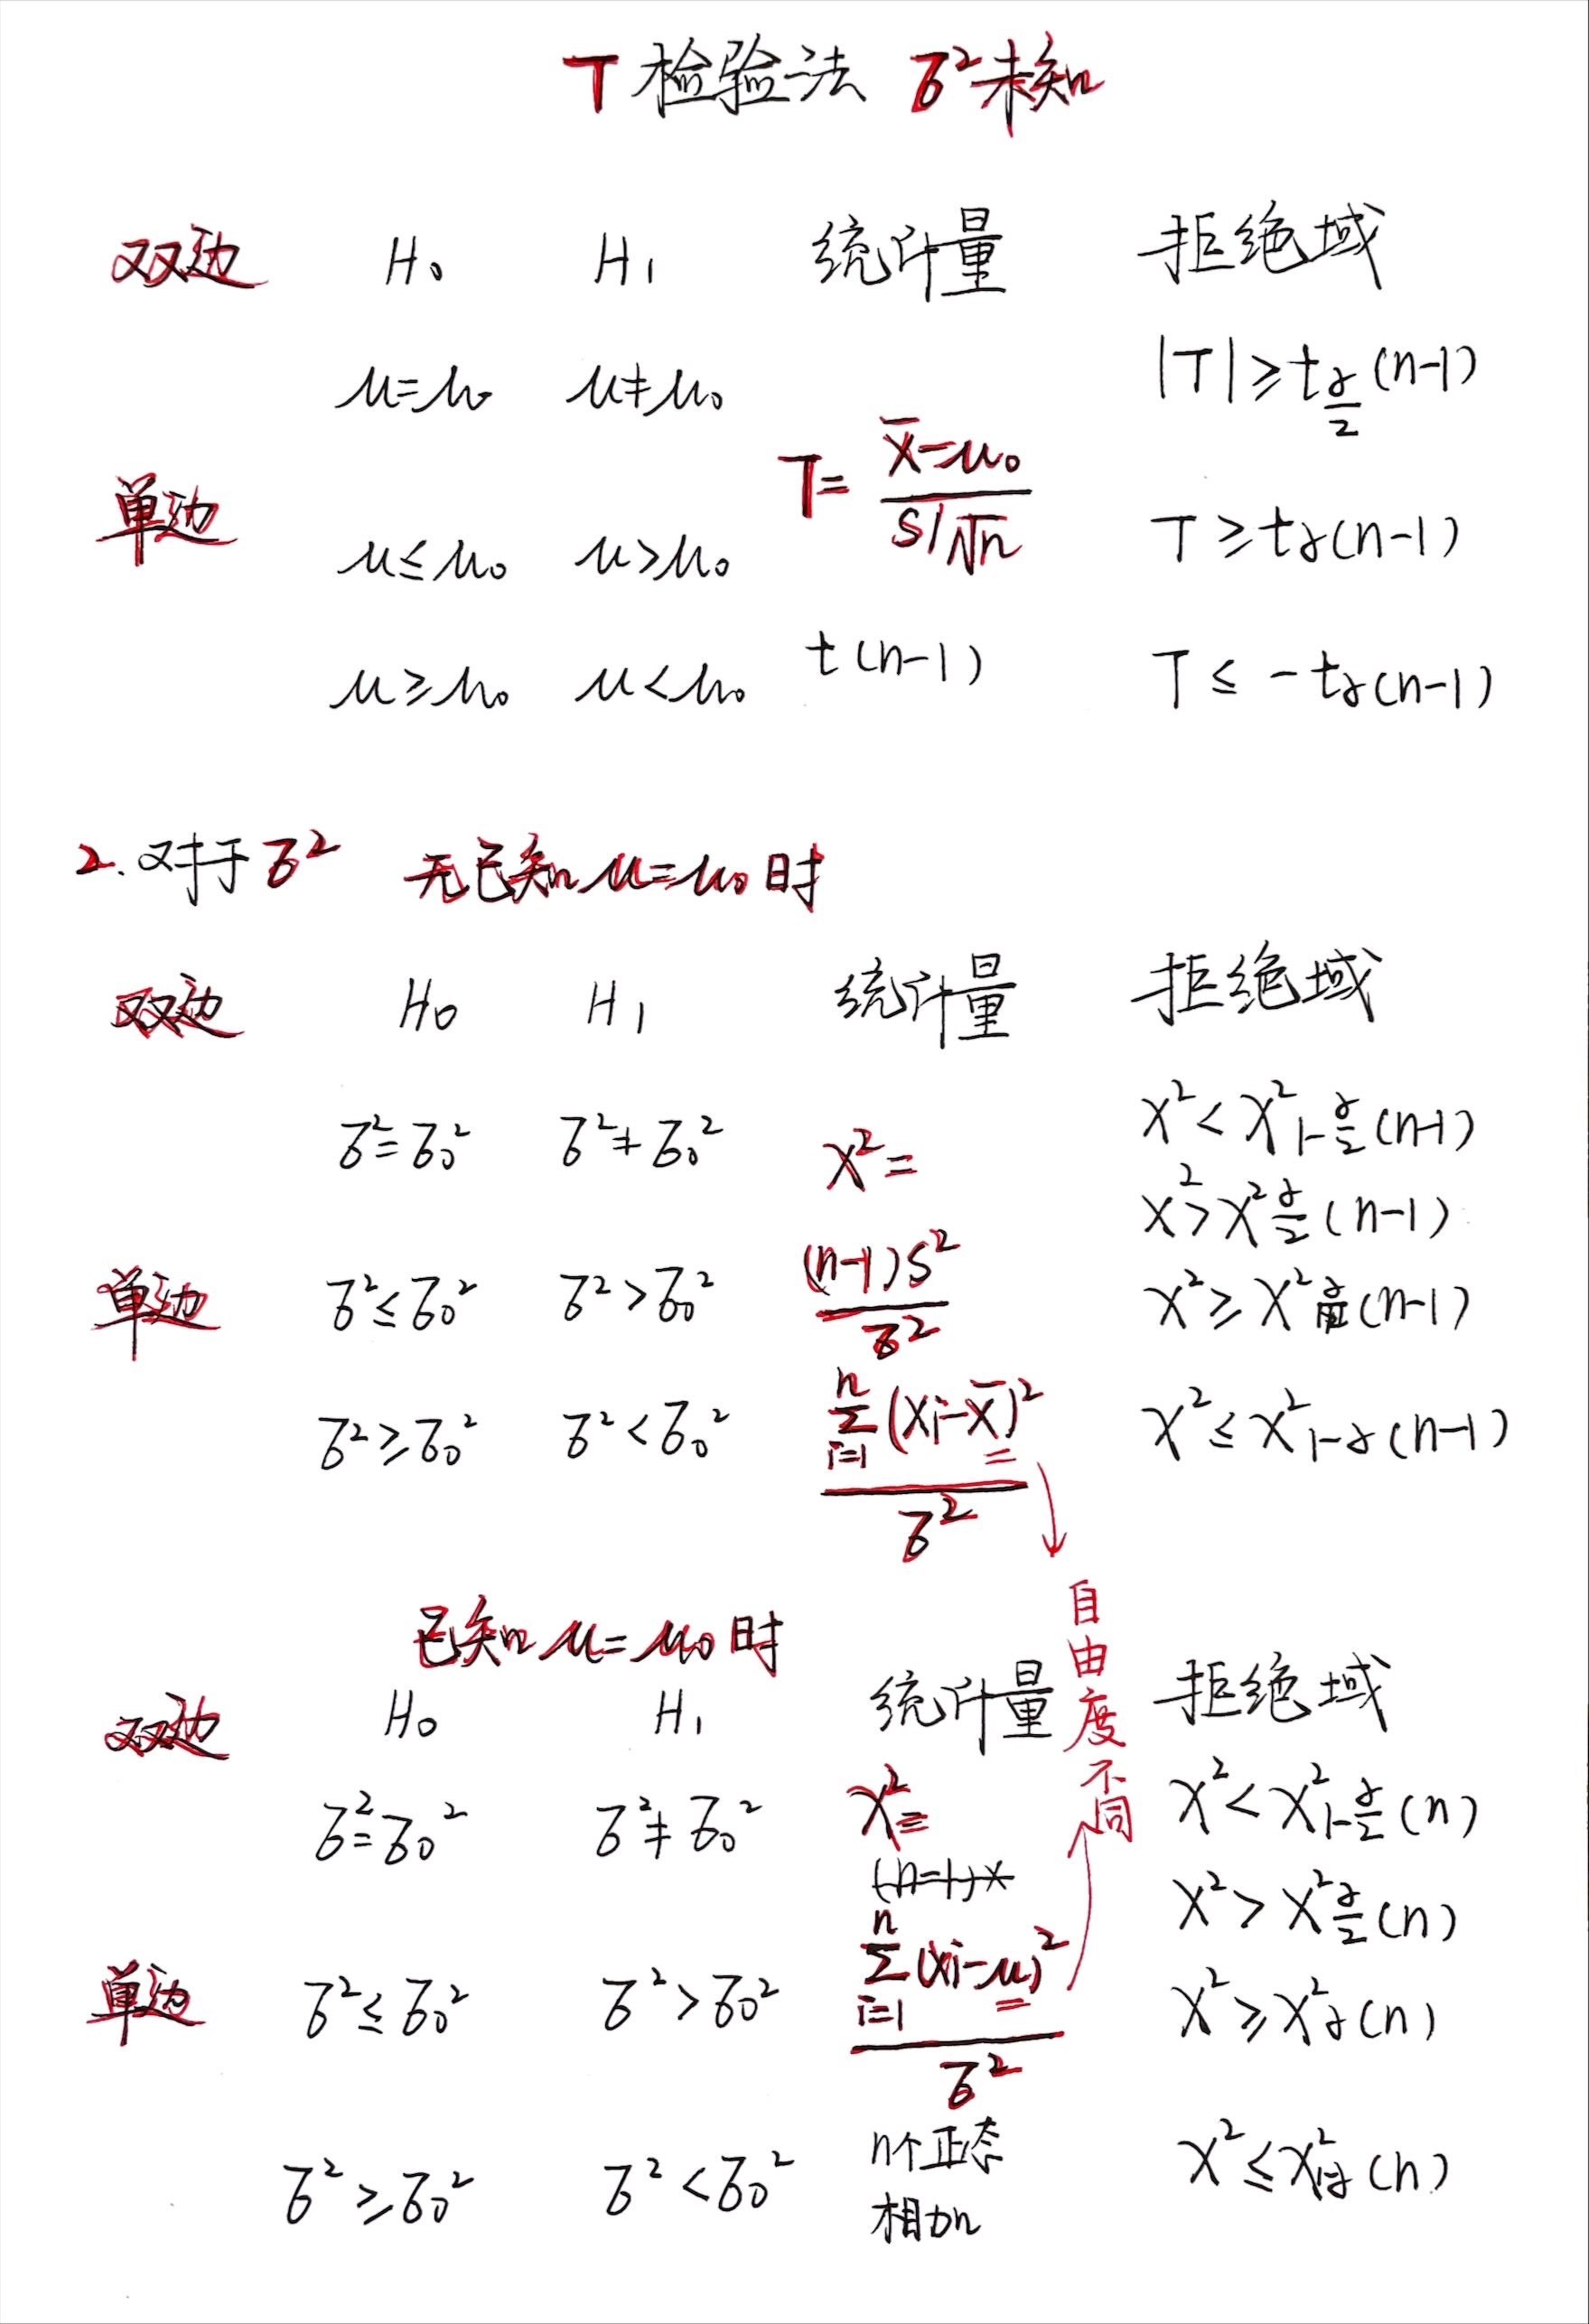 T检验法 σ²未知
双边 H₀ H₁ 统计量 拒绝域
μ=μ₀ μ≠μ₀ |T|≥t_{α/2}(n-1)
单边 T= (x̄-μ₀)/(S/√n)
μ≤μ₀ μ>μ₀ T≥t_α(n-1)
μ≥μ₀ μ<μ₀ t(n-1) T≤-t_α(n-1)
2.对于σ² 无已知μ=μ₀时
双边 H₀ H₁ 统计量 拒绝域
σ²=σ₀² σ²≠σ₀² χ²= χ²<χ²_{1-α/2}(n-1)
χ²>χ²_{α/2}(n-1)
单边 σ²≤σ₀² σ²>σ₀² (n-1)S²/σ² χ²≥χ²(n-1)
σ²≥σ₀² σ²<σ₀² Σ_{i=1}^{n}(Xi-X̄)²/σ² χ²≤χ²_{1-α}(n-1)
自由度不同
已知μ=μ₀时
双边 H₀ H₁ 统计量 拒绝域
σ²=σ₀² σ²≠σ₀² χ²= χ²<χ²_{1-α/2}(n)
(n-1)×
χ²>χ²_{α/2}(n)
单边 σ²≤σ₀² σ²>σ₀² Σ_{i=1}^{n}(Xi-μ)²/σ² χ²≥χ²_α(n)
σ²≥σ₀² σ²<σ₀² n个正态 χ²≤χ²_{1-α}(n)
相加